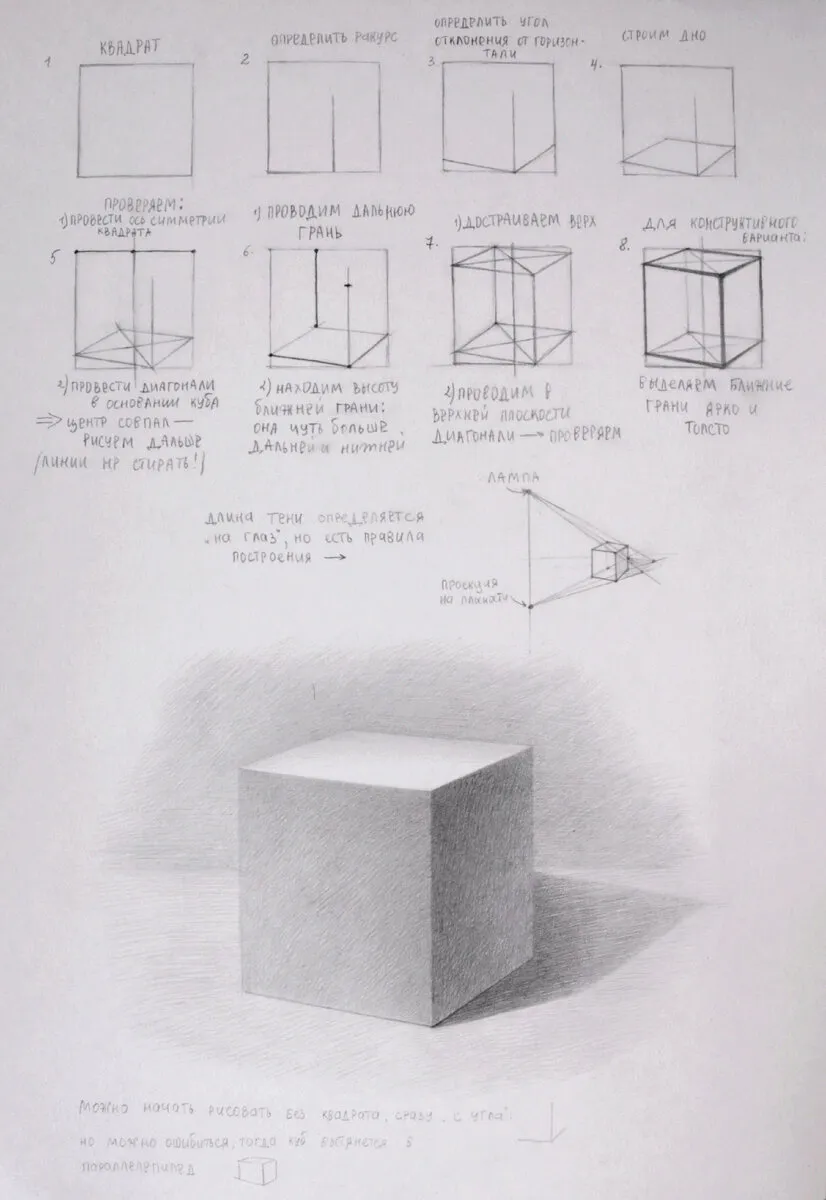 1
КВАДРАТ
2
ОПРЕДЕЛИТЬ РАКУРС
3.
ОПРЕДЕЛИТЬ УГОЛ
ОТКЛОНЕНИЯ ОТ ГОРИЗОН-
ТАЛИ
4.
СТРОИМ ДНО
5
ПРОВЕРЯЕМ:
1) ПРОВЕСТИ ОСЬ СИММЕТРИИ
КВАДРАТА
2) ПРОВЕСТИ ДИАГОНАЛИ
В ОСНОВАНИИ КУБА
⇒ ЦЕНТР СОВПАЛ —
РИСУЕМ ДАЛЬШЕ
/ЛИНИИ НЕ СТИРАТЬ!/
6.
1) ПРОВОДИМ ДАЛЬНЮЮ
ГРАНЬ
2) НАХОДИМ ВЫСОТУ
БЛИЖНЕЙ ГРАНИ:
ОНА ЧУТЬ БОЛЬШЕ
ДАЛЬНЕЙ И НИЖНЕЙ
7.
1) ДОСТРАИВАЕМ ВЕРХ
2) ПРОВОДИМ В
ВЕРХНЕЙ ПЛОСКОСТИ
ДИАГОНАЛИ → ПРОВЕРЯЕМ
8.
ДЛЯ КОНСТРУКТИВНОГО
ВАРИАНТА:
ВЫДЕЛЯЕМ БЛИЖНИЕ
ГРАНИ ЯРКО И
ТОЛСТО
ДЛИНА ТЕНИ ОПРЕДЕЛЯЕТСЯ
"НА ГЛАЗ", НО ЕСТЬ ПРАВИЛА
ПОСТРОЕНИЯ →
ЛАМПА
ПРОЕКЦИЯ
НА
МОЖНО НАЧАТЬ РИСОВАТЬ БЕЗ КВАДРАТА, СРАЗУ "С УГЛА":
НО МОЖНО ОШИБИТЬСЯ, ТОГДА КУБ ВЫТЯНЕТСЯ В
ПАРАЛЛЕЛЕПИПЕД